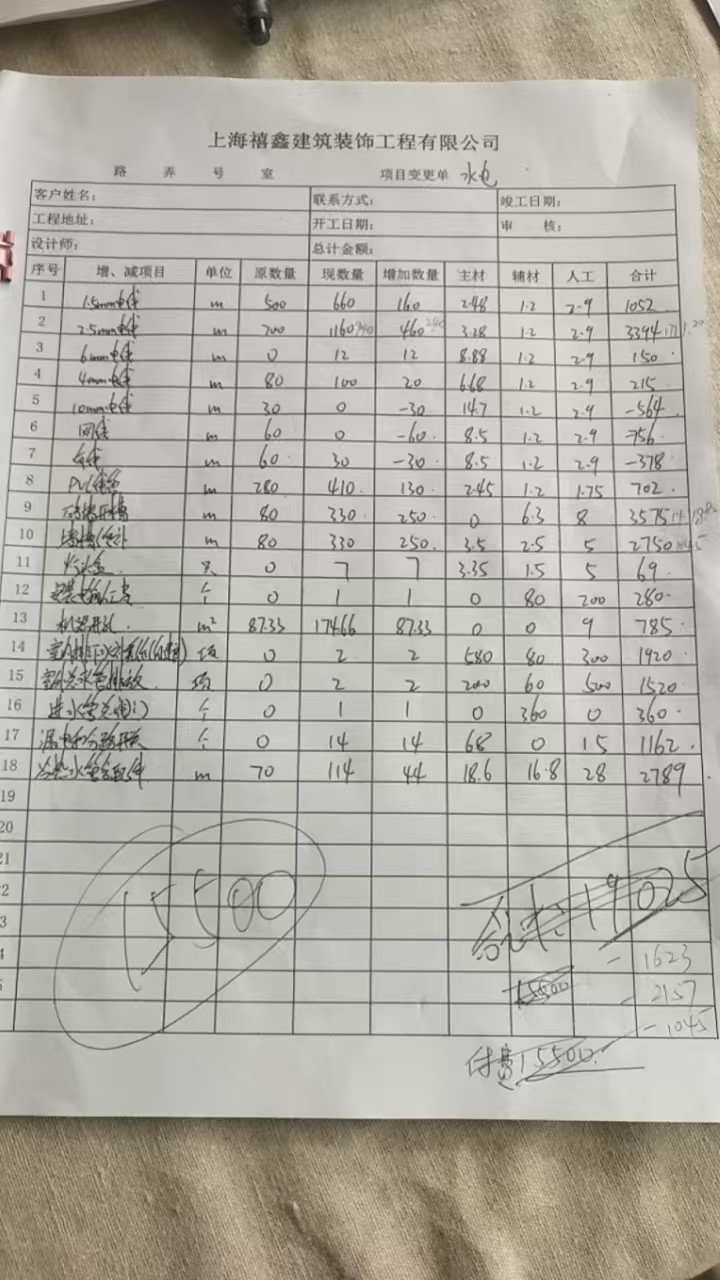 上海禧鑫建筑装饰工程有限公司
路 弄 号 室 项目变更单 水电
客户姓名： 联系方式： 竣工日期：
工程地址： 开工日期： 审 核：
设计师： 总计金额：
序号 增、减项目 单位 原数量 现数量 增加数量 主材 辅材 人工 合计
1 1.5mm电线 m 500 660 160 2.48 1.2 2.9 1052
2 2.5mm电线 m 700 1160 460 3.18 1.2 2.9 3394
3 6mm电线 m 0 12 12 8.88 1.2 2.9 150
4 4mm电线 m 80 100 20 6.68 1.2 2.9 215
5 10mm电线 m 30 0 -30 14.7 1.2 2.9 -564
6 网线 m 60 0 -60 8.5 1.2 2.9 -756
7 m 60 30 -30 8.5 1.2 2.9 -378
8 PVC线管 m 280 410 130 2.45 1.2 1.75 702
9 m 80 330 250 0 6.3 8 3575
10 m 80 330 250 3.5 2.5 5 2750
11 灯头盒 只 0 7 7 3.35 1.5 5 69
12 个 0 1 1 0 80 200 280
13 机器开孔 m² 87.33 174.66 87.33 0 0 9 785
14 项 0 2 2 580 80 300 1920
15 项 0 2 2 200 60 500 1520
16 个 0 1 1 0 360 0 360
17 漏电和分路开关 个 0 14 14 68 0 15 1162
18 冷热水管含配件 m 70 114 44 18.6 16.8 28 2789
19
20
21
15500
合计：19025
- 1623
15500
- 2157
- 1045
付费15500